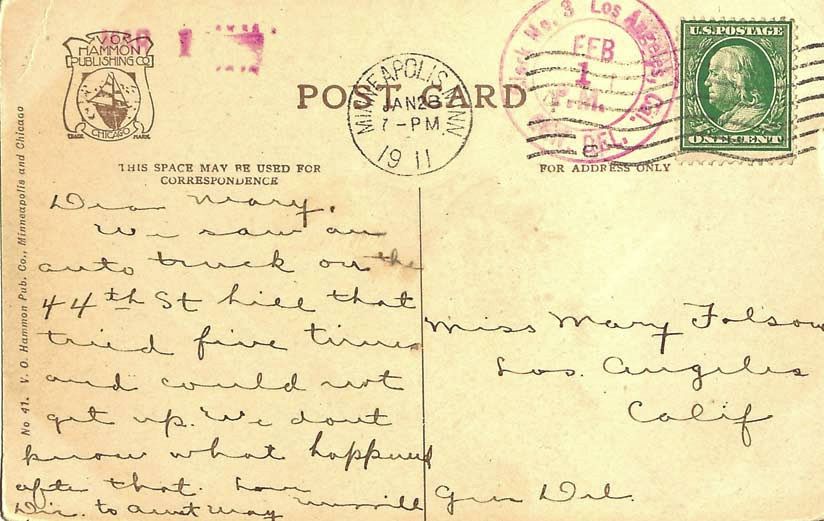 MAR 1
V.O.
HAMMON
PUBLISHING CO
CHICAGO
TRADE MARK
POST CARD
MINNEAPOLIS, MINN.
JAN 28
7-PM
1911
Clerk No. 3 Los Angeles, Cal.
FEB
1
P.M.
GEN. DEL.
U.S. POSTAGE
ONE CENT
THIS SPACE MAY BE USED FOR
CORRESPONDENCE
FOR ADDRESS ONLY
No 41. V. O. Hammon Pub. Co., Minneapolis and Chicago
Dear Mary,
We saw an
auto truck on the
44th St hill that
tried five times
and could not
get up. We dont
know what happened
after that. Love
Merrill
to Aunt May
Miss Mary Folsom
Los Angeles
Calif
Gen Del.